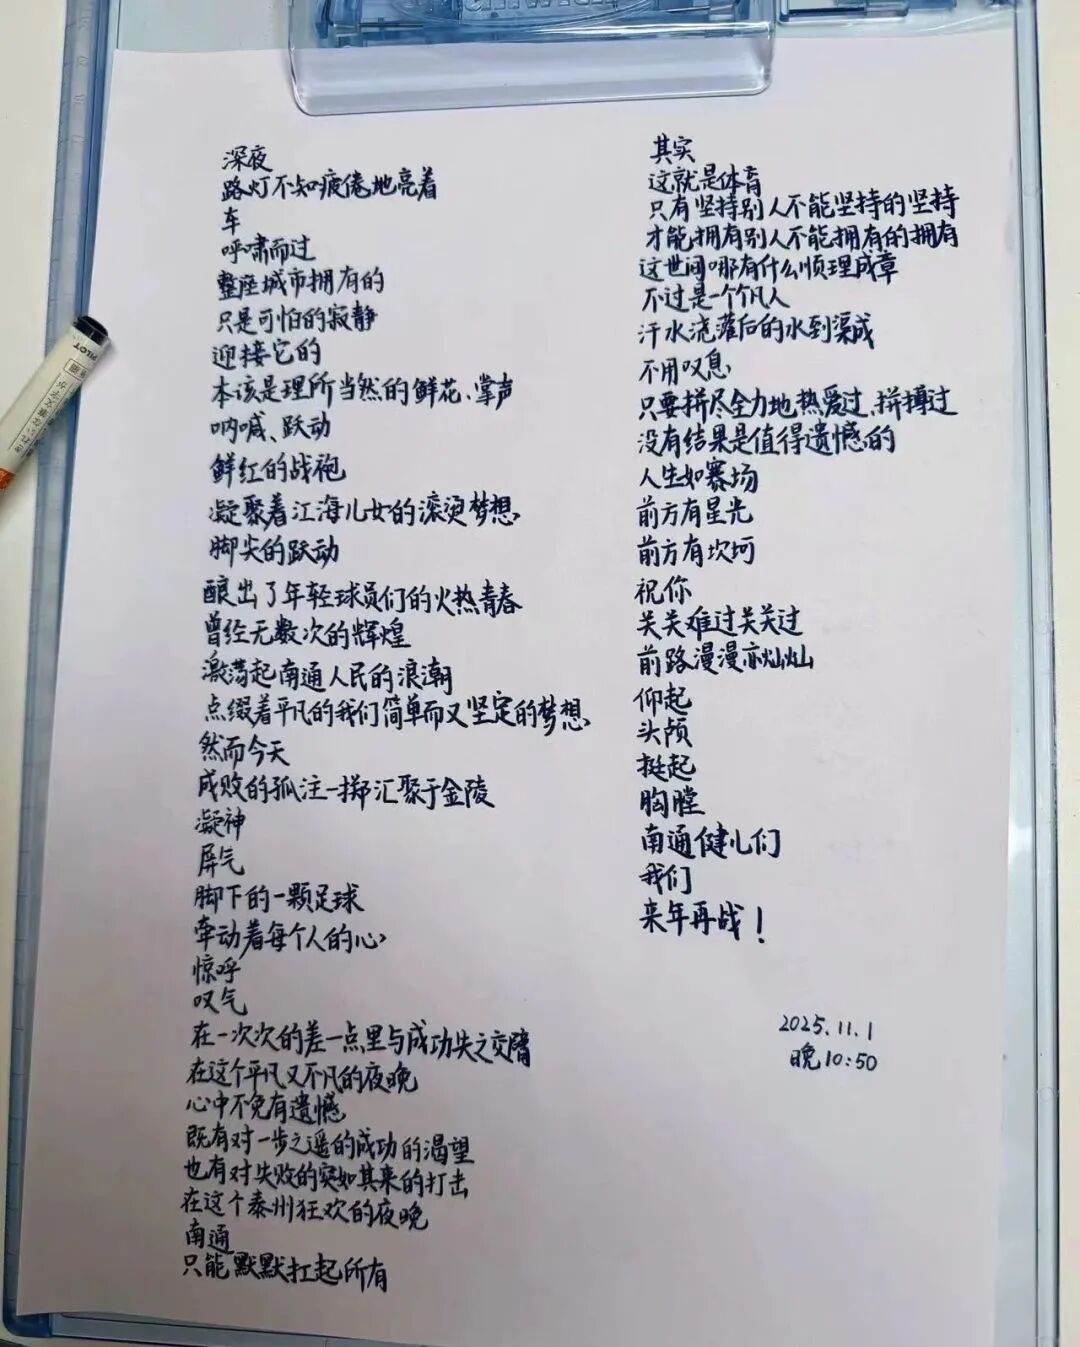 深夜
路灯不知疲倦地亮着
车
呼啸而过
整座城市拥有的
只是可怕的寂静
迎接它的
本该是理所当然的鲜花、掌声
呐喊、跃动
鲜红的战袍
凝聚着江海儿女的滚烫梦想
脚尖的跃动
酿出了年轻球员们的火热青春
曾经无数次的辉煌
激荡起南通人民的浪潮
点缀着平凡的我们简单而又坚定的梦想
然而今天
成败的孤注一掷汇聚于金陵
凝神
屏气
脚下的一颗足球
牵动着每个人的心
惊呼
叹气
在一次次的差一点里与成功失之交臂
在这个平凡又不凡的夜晚
心中不免有遗憾
既有对一步之遥的成功的渴望
也有对失败的突如其来的打击
在这个泰州狂欢的夜晚
南通
只能默默扛起所有
其实
这就是体育
只有坚持别人不能坚持的坚持
才能拥有别人不能拥有的拥有
这世间哪有什么顺理成章
不过是一个个凡人
汗水浇灌后的水到渠成
不用叹息
只要拼尽全力地热爱过、拼搏过
没有结果是值得遗憾的
人生如赛场
前方有星光
前方有坎坷
祝你
关关难过关关过
前路漫漫亦灿灿
仰起
头颅
挺起
胸膛
南通健儿们
我们
来年再战！
2025.11.1
晚10:50
PILOT